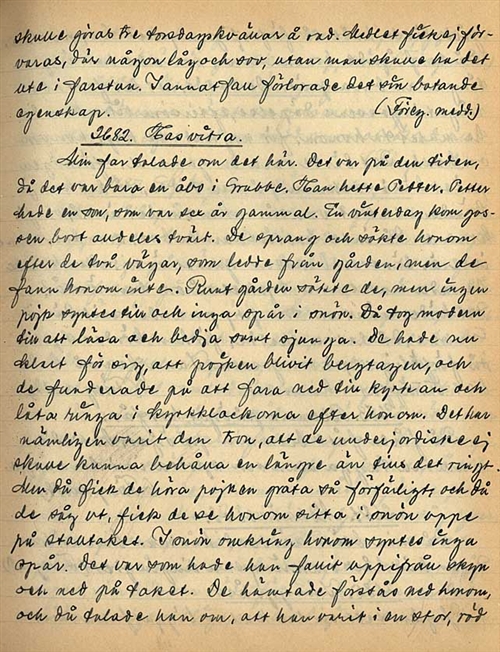 skulle göras tre torsdagskvällar å rad. Medlet fick ej för-
varas, där någon låg och sov, utan man skulle ha det
ute i farstun. I annat fall förlorade det sin botande
egenskap. (Föreg. medd.)
2682. Hos vittra.
Min far talade om det här. Det var på den tiden,
då det var bara en åbo i Grubbe. Han hette Petter. Petter
hade en son, som var sex år gammal. En vinterdag kom gos-
sen bort alldeles tvärt. De sprang och sökte honom
efter de två vägar, som ledde från gården, men de
fann honom inte. Runt gården sökte de, men ingen
pojk syntes till och inga spår i snön. Då tog modern
till att läsa och bedja samt sjunga. De hade nu
klart för sig, att pojken blivit bergtagen, och
de funderade på att fara ned till kyrkan och
låta ringa i kyrkklockorna efter honom. Det har
nämligen varit den tron, att de underjordiske ej
skulle kunna behålla en längre än tills det ringt.
Men då fick de höra pojken gråta så förfärligt, och då
de såg ut, fick de se honom sitta i snön uppe
på stalltaket. I snön omkring honom syntes inga
spår. Det var som hade han fallit uppifrån skyn
och ned på taket. De hämtade förstås ned honom,
och då talade han om, att han varit i en stor, röd